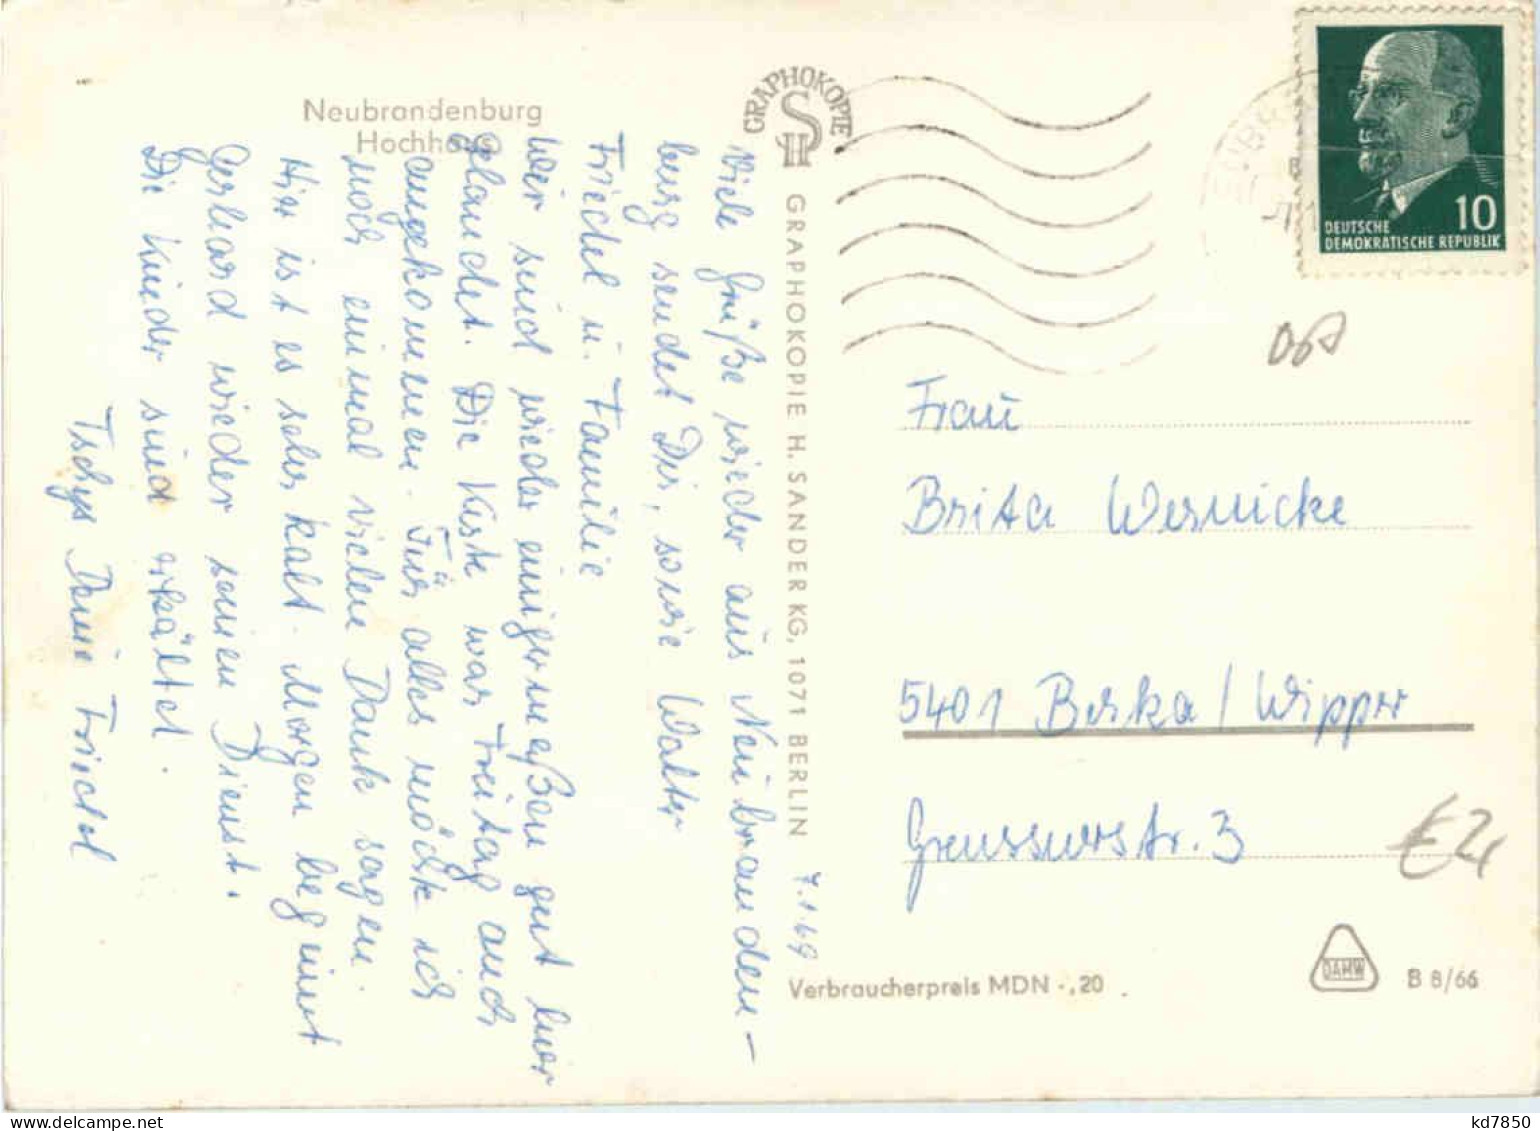 Neubrandenburg
Hochhaus
GRAPHOKOPIE
H S
GRAPHOKOPIE H. SANDER KG, 1071 BERLIN
7.1.69
Viele Grüße wieder aus Neubranden-
burg sendet Dir, sowie Walter
Friedel u. Familie
Wir sind wieder einigermeßen gut hier
gelandet. Die Kiste war Freitag auch
angekommen. Für alles möchte ich
noch einmal vielen Dank sagen.
Hier ist es sehr kalt. Morgen beginnt
Gerhard wieder seinen Dienst.
Die Kinder sind erkältet.
Tschüs Deine Friedel
DEUTSCHE
DEMOKRATISCHE REPUBLIK
10
Frau
Brita Wernicke
5401 Berka / Wipper
Greussenerstr. 3
Verbraucherpreis MDN -,20
DAMW
B 8/66
kd7850